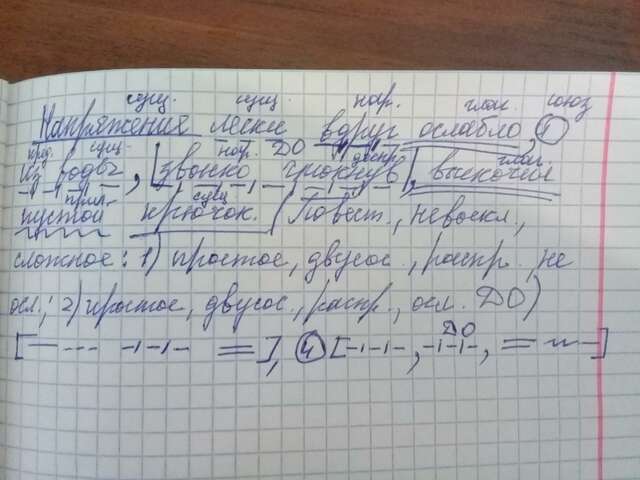 сущ. сущ. нар. глаг. союз
Напряжения лески вдруг ослабло, и
пред. сущ. нар. ДО деепр. глаг.
из воды, звонко чмокнув, выскочил
прил. сущ
пустой крючок. (Повест., невоскл.,
сложное: 1) простое, двусос., распр., не
осл.; 2) простое, двусос., распр., осл. ДО)
ДО
[ ], и [ , , ]